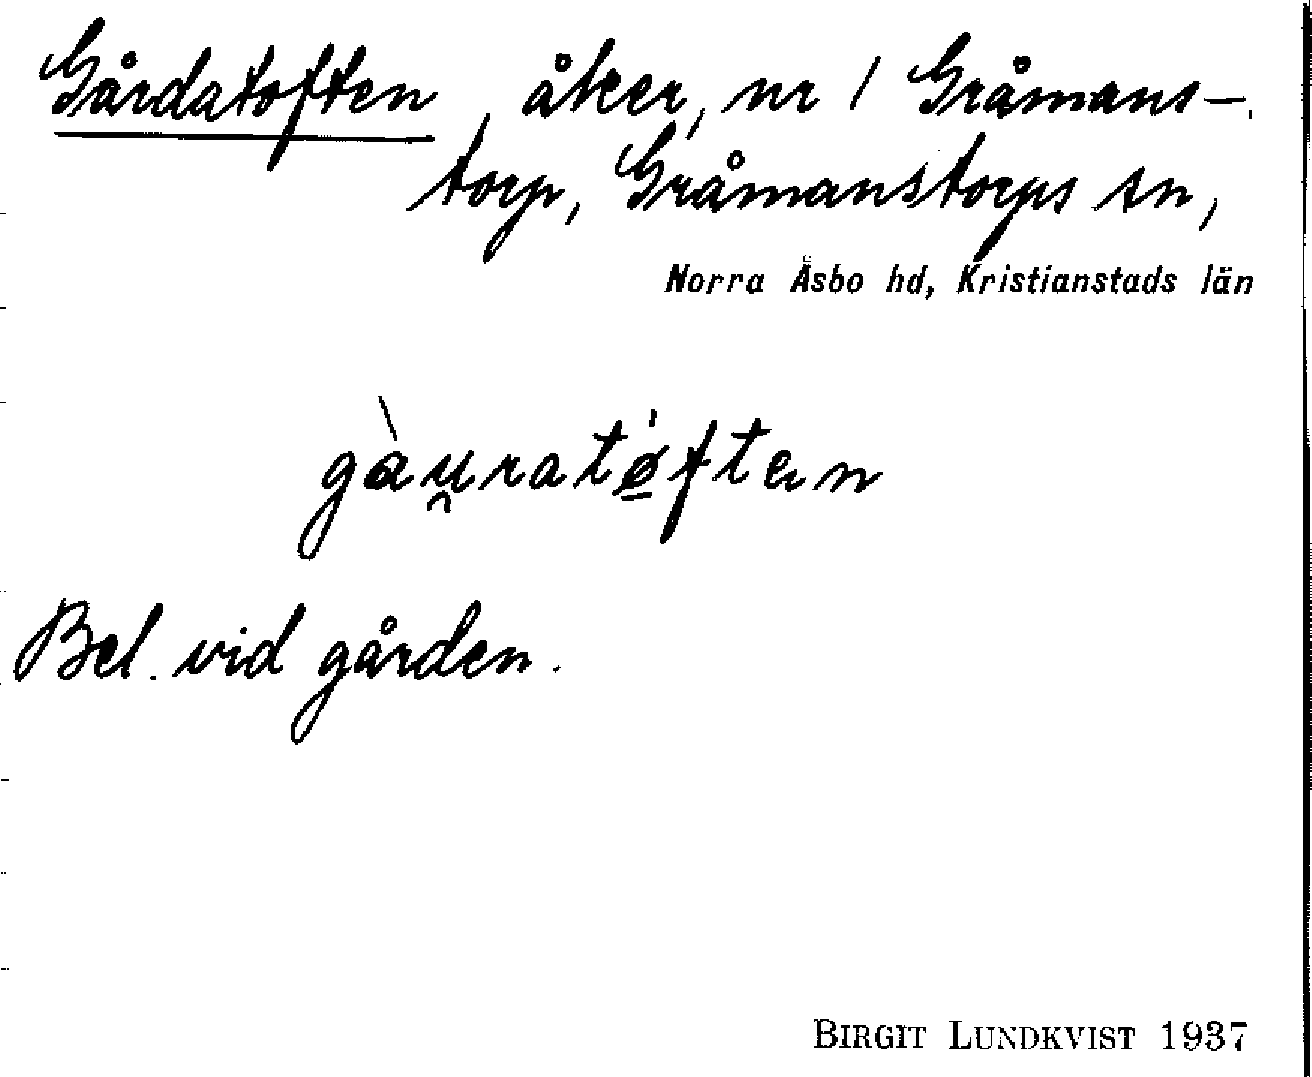 Gårdatoften, åker, nr 1 Gråmans-
torp, Gråmanstorps sn,
Norra Åsbo hd, Kristianstads län
gàu̯ratǿ̲ften
Bel. vid gården.
BIRGIT LUNDKVIST 1937